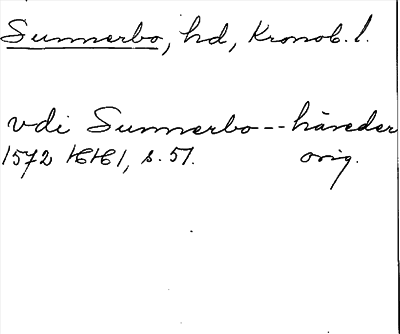 Sunnerbo, hd, Kronob. l.
vdi Sunnerbo -- häreder
1572 HH 1, s. 51. orig.